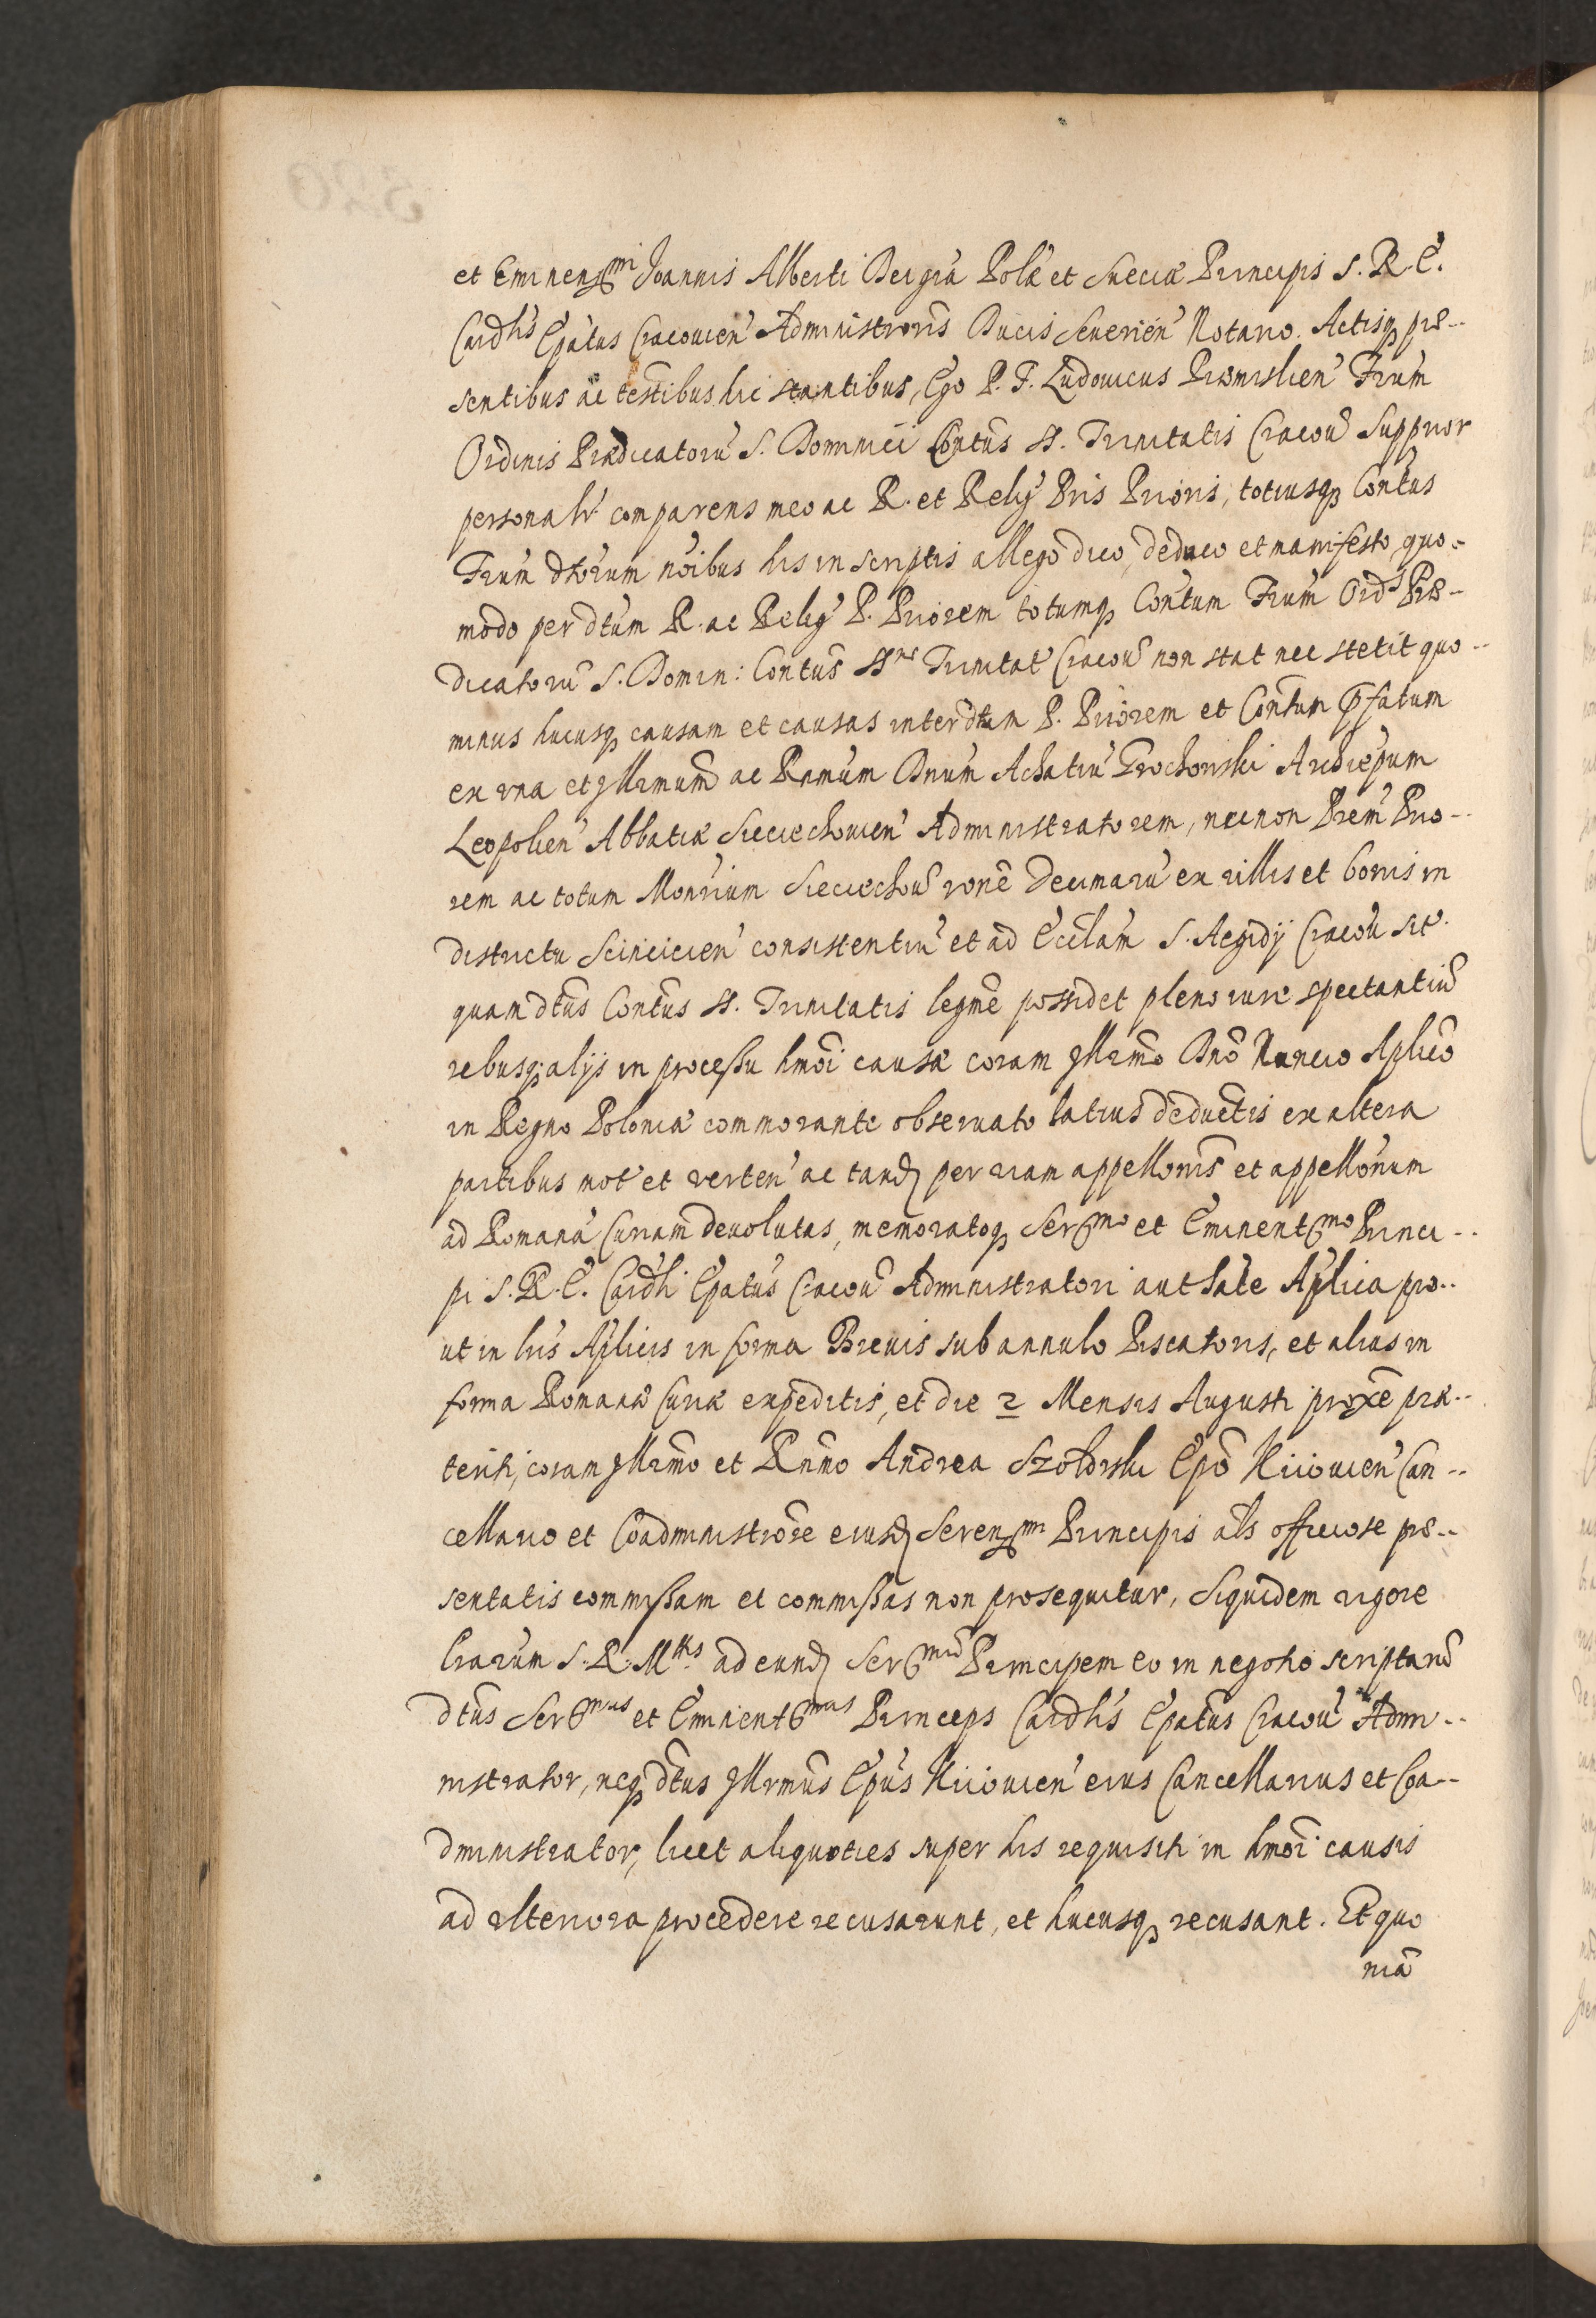 et Eminenssmi Joannis Alberti Dei gra Polæ et Sueciæ Principis S. R. E.
Cardlis Epatus Cracouien Administroris Ducis Seuerien Notario. Actisq præ--
sentibus ac testibus hic stantibus, Ego P. F. Ludouicus Premislien Frum
Ordinis Prædicatoru S. Dominici Contus SS. Trinitatis Cracou Supprior
personalr comparens meo ac R. et Relig Pris Prioris, totiusq Contus
Frum dtorum noibus his in scriptis allego dico, deduco et manifesto, quo-
modo per dtum R. ac Relig P. Priorem totumq Contum Frum Ords Præ-
dicatoru S. Domin: Contus SSme Trinitat Cracou non stat nec stetit quo--
minus hucusq causam et causas inter dtum P. Priorem et Contum pfatum
ex vna et Jllrmum ac Rnmum Dnum Achatiu Grochowski Archiepum
Leopolien Abbatiæ Sieciechouien Administratorem, necnon Prem Prio--
rem ac totum Monrium Sieciechou rone decimaru ex villis et bonis in
districtu Scinicien consistentiu et ad Ecclam S. Aegidij Cracou sit
quam dtus Contus SS. Trinitatis legme possidet pleno iure spectantiu
rebusq alijs in processu hmoi causæ coram Jllrmo Dno Nuncio Aplico
in Regno Poloniæ commorante obseruato latius deductis ex altera
partibus mot et verten ac tand per viam appellonis et appellonum
ad Romana Curiam deuolutas, memoratoq Sersmo et Eminentsmo Princi--
pi S. R. E. Cardli Epatus Cracou Administratori authate Aplica pro--
ut in lris Aplicis in forma Breuis sub annulo Piscatoris, et alias in
forma Romanæ Curiæ expeditis, et die 2 Mensis Augusti proxe præ--
teriti, coram Jllrmo et Rnmo Andrea Szoldrski Epo Kiiouien Can--
cellario et Coadministrore eiusd Serenssmi Principis als officiose præ--
sentatis commissam et commissas non prosequitur, Siquidem vigore
lrarum S. R. Mttis ad eund Sersmu Principem eo in negotio scriptaru
dtus Sersmus et Eminentsmus Princeps Cardlis Epatus Cracou Admi--
nistrator, neq dtus Jllrmus Epus Kiiouien eius Cancellarius et Coa--
dministrator, licet aliquoties super his requisiti in hmoi causis
ad vlteriora procedere recusarunt, et hucusq recusant. Et quo
nia